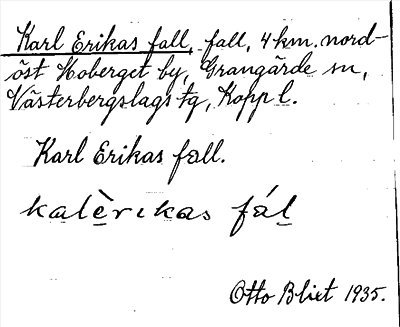 Karl Erikas fall, fall, 4 km. nord-
öst Moberget by, Grangärde sn,
Västerbergslags tg, Kopp l.
Karl Erikas fall.
kalèrıkas fál
Otto Blixt 1935.